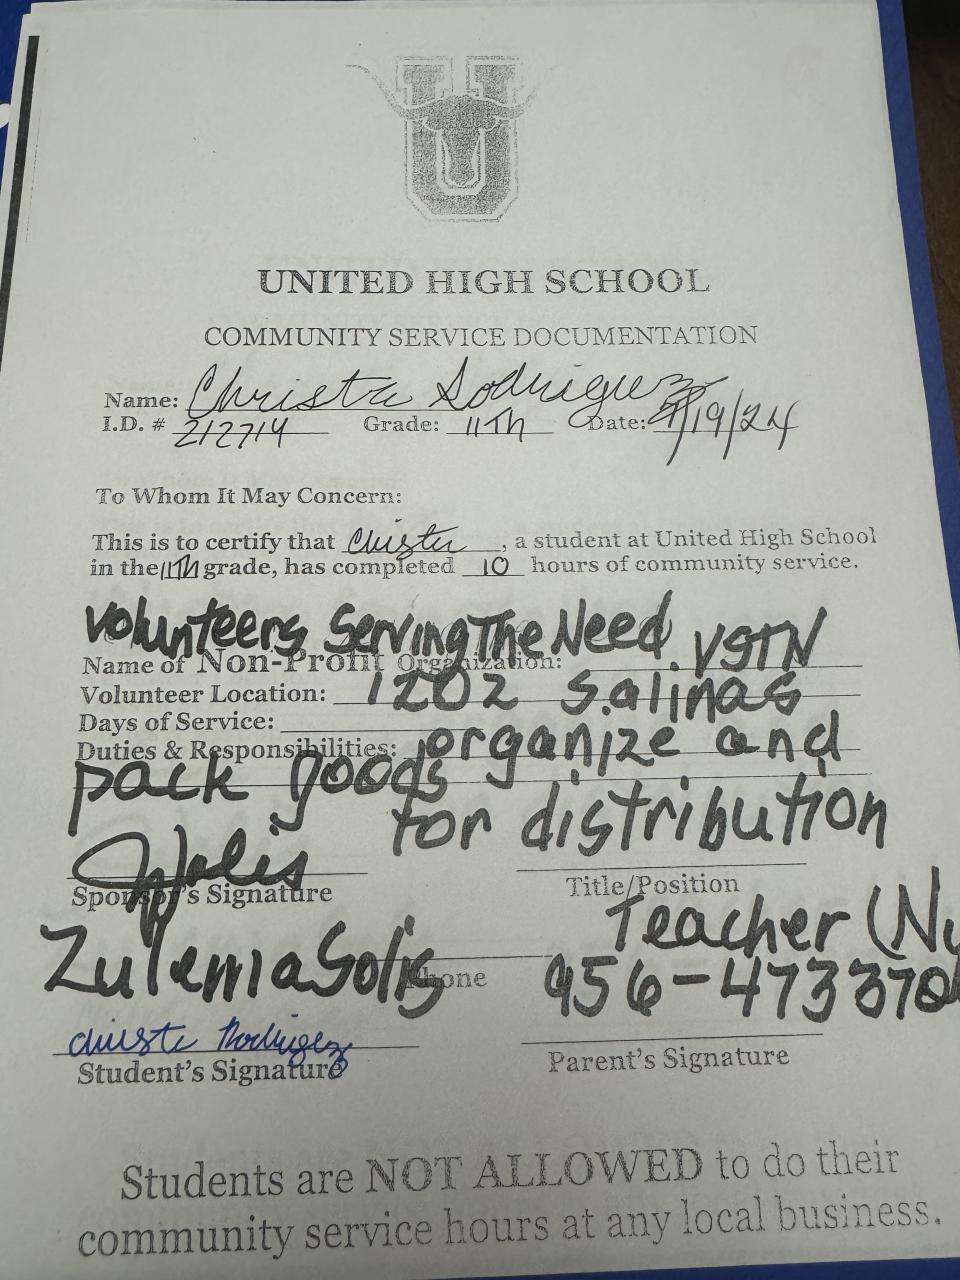 U
UNITED HIGH SCHOOL
COMMUNITY SERVICE DOCUMENTATION
Name: Christa Rodriguez
I.D. # 212714 Grade: 11Th Date: /19/24
To Whom It May Concern:
This is to certify that Christa, a student at United High School
in the 11Th grade, has completed 10 hours of community service.
Volunteers Serving The Need. VSTN
Name of Non-Profit Organization:
Volunteer Location: 1202 Salinas
Days of Service:
Duties & Responsibilities: organize and
pack goods for distribution
Solis
Sponsor's Signature Title/Position
Teacher
Zulema Solis Phone 956-473370
Christa Rodriguez
Student's Signature Parent's Signature
Students are NOT ALLOWED to do their
community service hours at any local business.